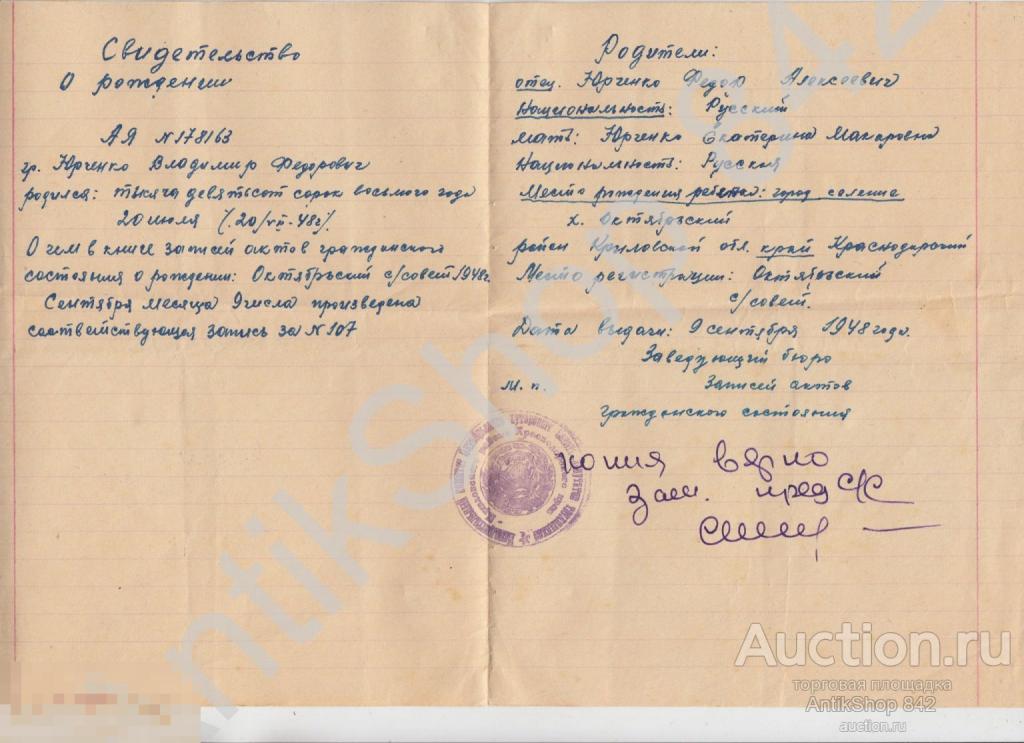 Свидетельство
О рождении
АЯ №178163
гр. Юрченко Владимир Федорович
родился: тысяча девятьсот сорок восьмого года
20 июля (.20/VII-48г).
О чем в книге записей актов гражданского
состояния о рождении: Октябрьский с/совет 1948г.
Сентября месяца 9 числа произведена
соответствующая запись за №107
Родители:
отец. Юрченко Федор Алексеевич
Национальность: Русский
мать: Юрченко Екатерина Макаровна
Национальность: Русская
Место рождения ребенка: город селение
х. Октябрьский
район Крыловской обл. край Краснодарский
Место регистрации: Октябрьский
с/совет.
Дата выдачи: 9 сентября 1948 года.
Заведующий бюро
м. п. Записей актов
гражданского состояния
копия верна
Зам. пред С/С
AntikShop 842
Auction.ru
торговая площадка
AntikShop 842
auction.ru